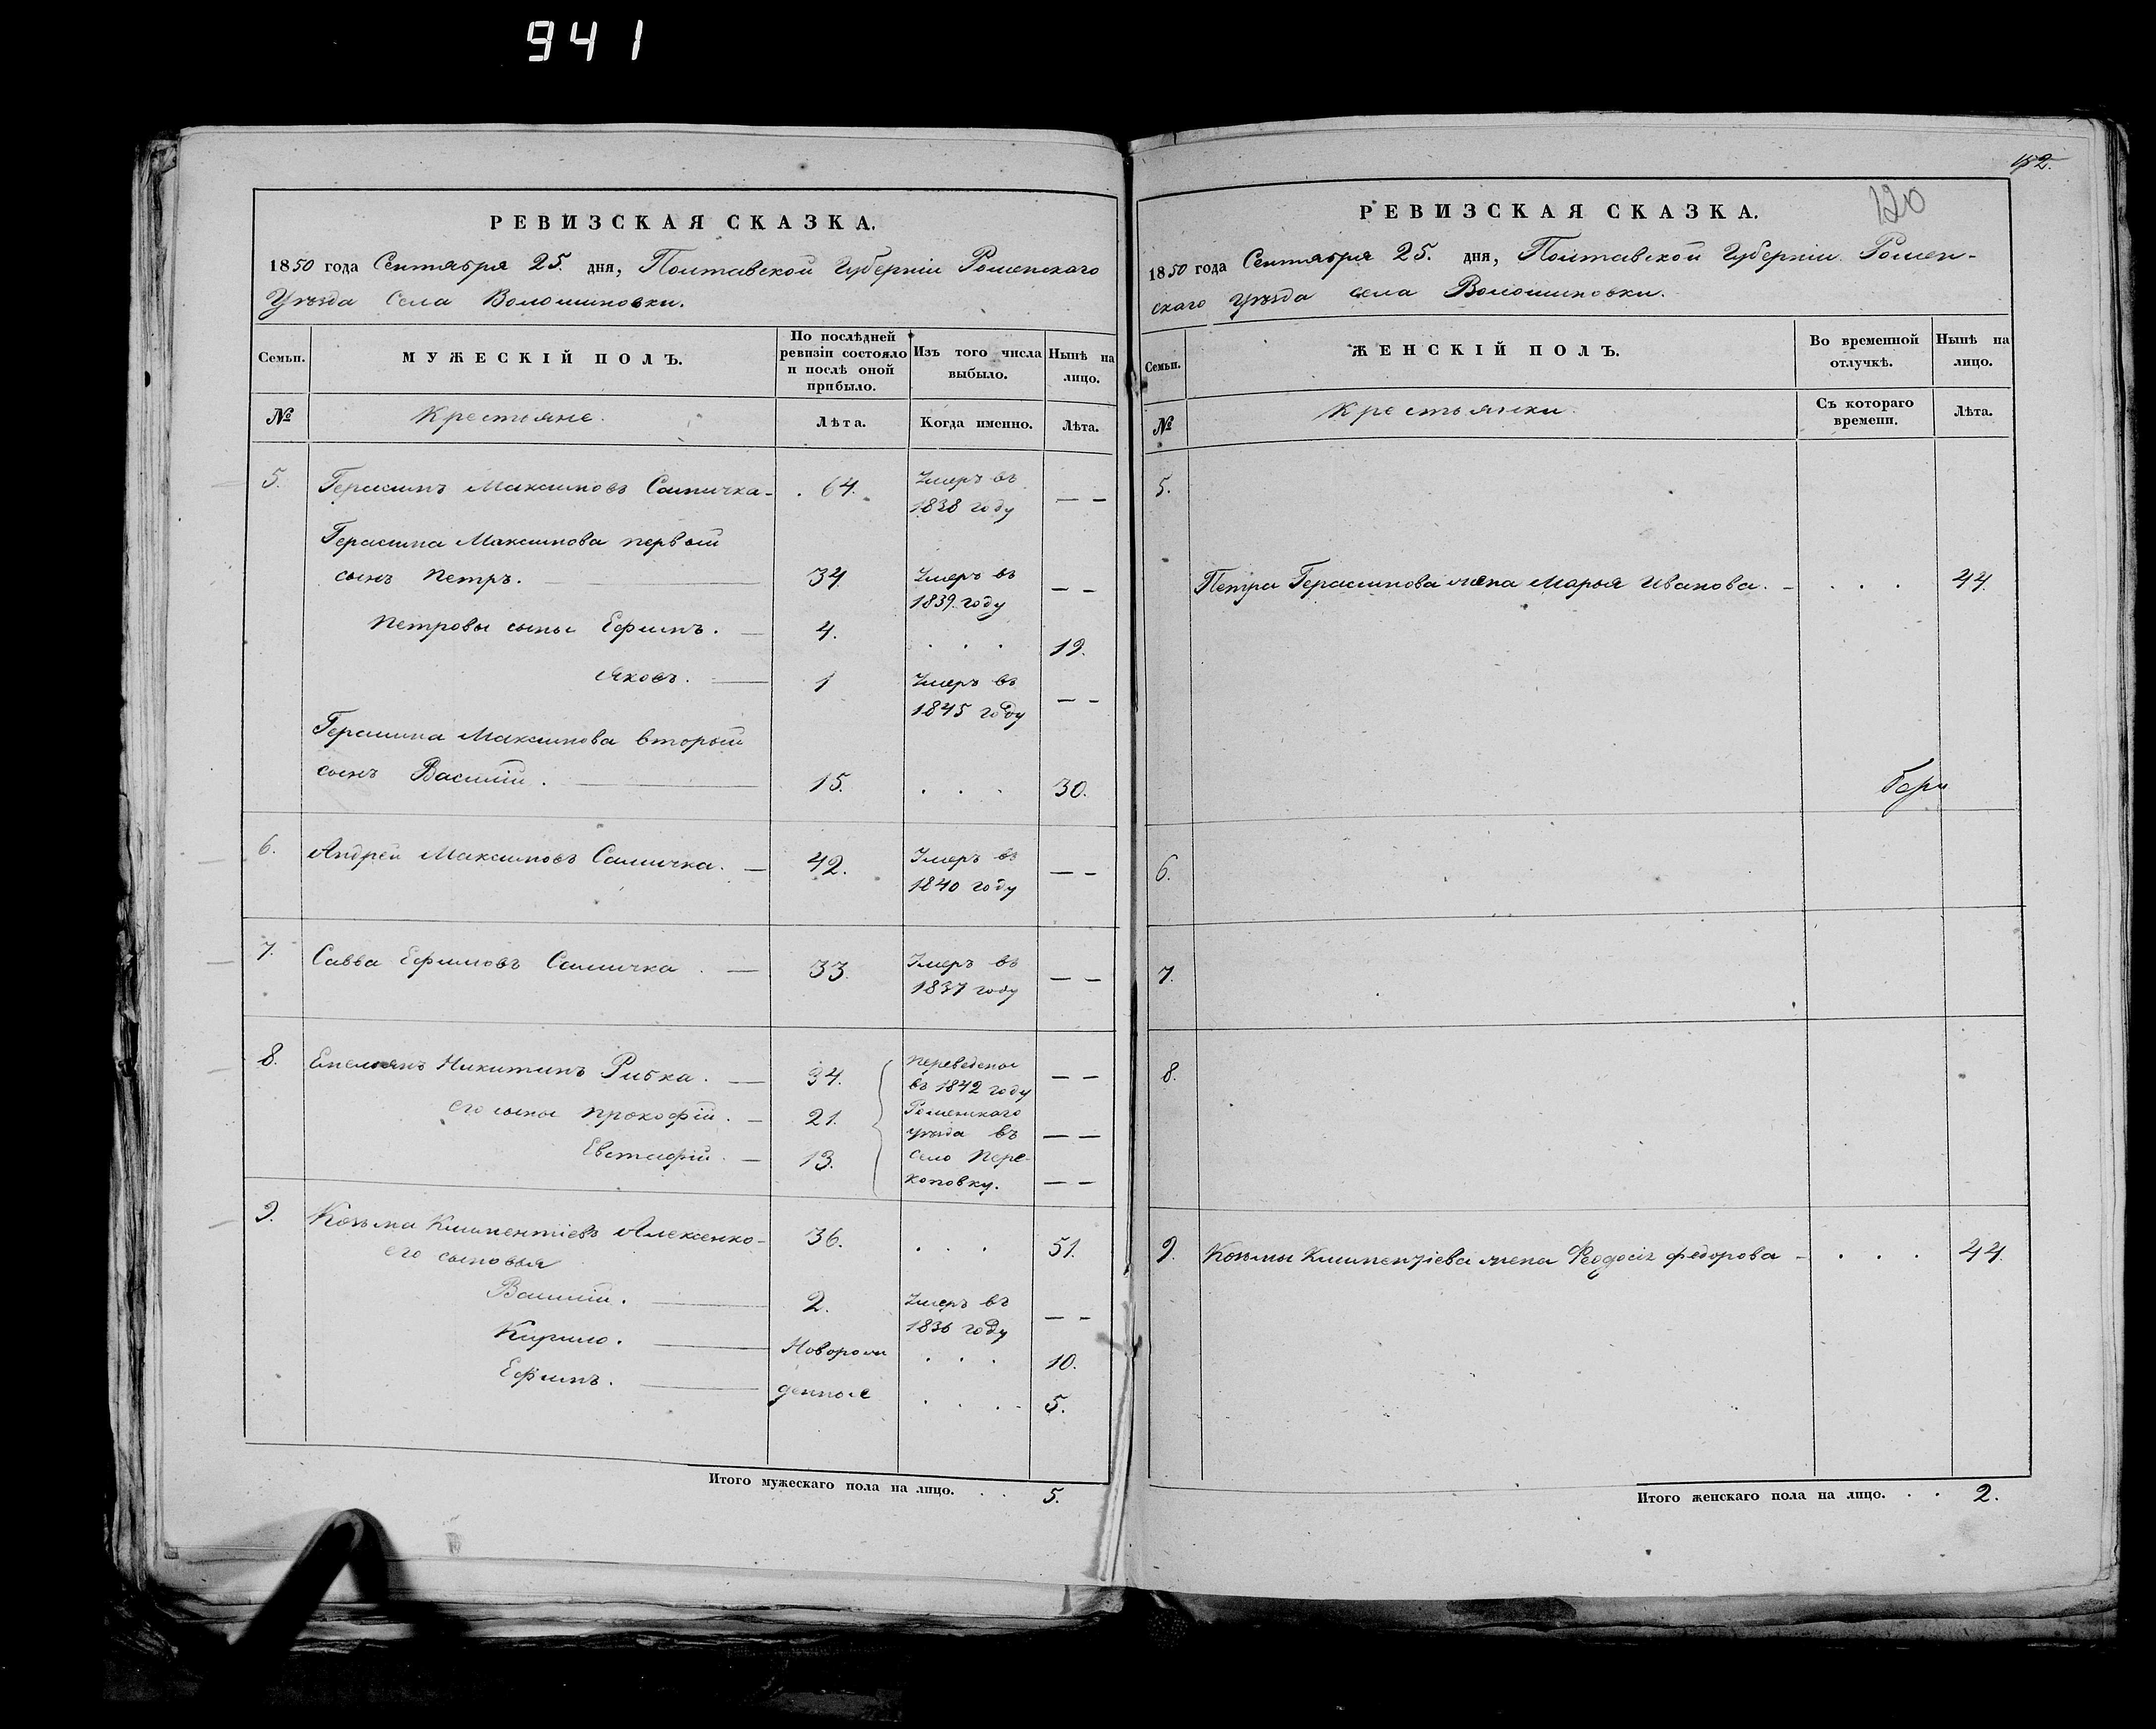 941
РЕВИЗСКАЯ СКАЗКА.
1850 года Сентября 25. дня, Полтавской Губерніи Роменскаго
Уѣзда Села Волошиновки.
Семьи.
МУЖЕСКІЙ ПОЛЪ.
По послѣдней ревизіи состояло и послѣ оной прибыло.
Изъ того числа выбыло.
Нынѣ на лицо.
№
Крестьяне.
Лѣта.
Когда именно.
Лѣта.
5. Герасимъ Максимовъ Самичка - 64. Умеръ въ — —
1838 году
Герасима Максимова первый
сынъ Петръ. — 34. Умеръ въ — —
1839. году
Петровы сыны Ефимъ. — 4. . . . 19.
Яковъ. — 1 Умеръ въ — —
1845 году
Герасима Максимова вторый
сынъ Василій. — 15. . . . 30.
6. Андрей Максимовъ Самичка. — 42. Умеръ въ — —
1840 году
7. Савва Ефимовъ Самичка. — 33. Умеръ въ — —
1837 году
8. Емельянъ Никитинъ Рибка. — 34. переведены — —
въ 1842 году
его сыны Прокофій. — 21. Роменскаго
уѣзда въ — —
Евстафій. — 13. село Пере-
коповку. — —
9. Козьма Климентіевъ Алексенко - 36. . . . 51.
его сыновья
Василій. — 2. Умеръ въ — —
1836 году
Кирило. — Новорож . . . 10.
Ефимъ. — денные . . . 5.
Итого мужескаго пола на лицо. . . 5.
152.
120
РЕВИЗСКАЯ СКАЗКА.
1850 года Сентября 25. дня, Полтавской Губерніи Ромен-
скаго Уѣзда села Волошиновки.
Семьи.
ЖЕНСКІЙ ПОЛЪ.
Во временной отлучкѣ.
Нынѣ на лицо.
№
Крестьянки
Съ котораго времени.
Лѣта.
5.
Петра Герасимова жена Марья Иванова. - . . . 44.
6.
7.
8.
9. Козьмы Климентіева жена Феодосія Федорова - . . . 44.
Итого женскаго пола на лицо. . . 2.